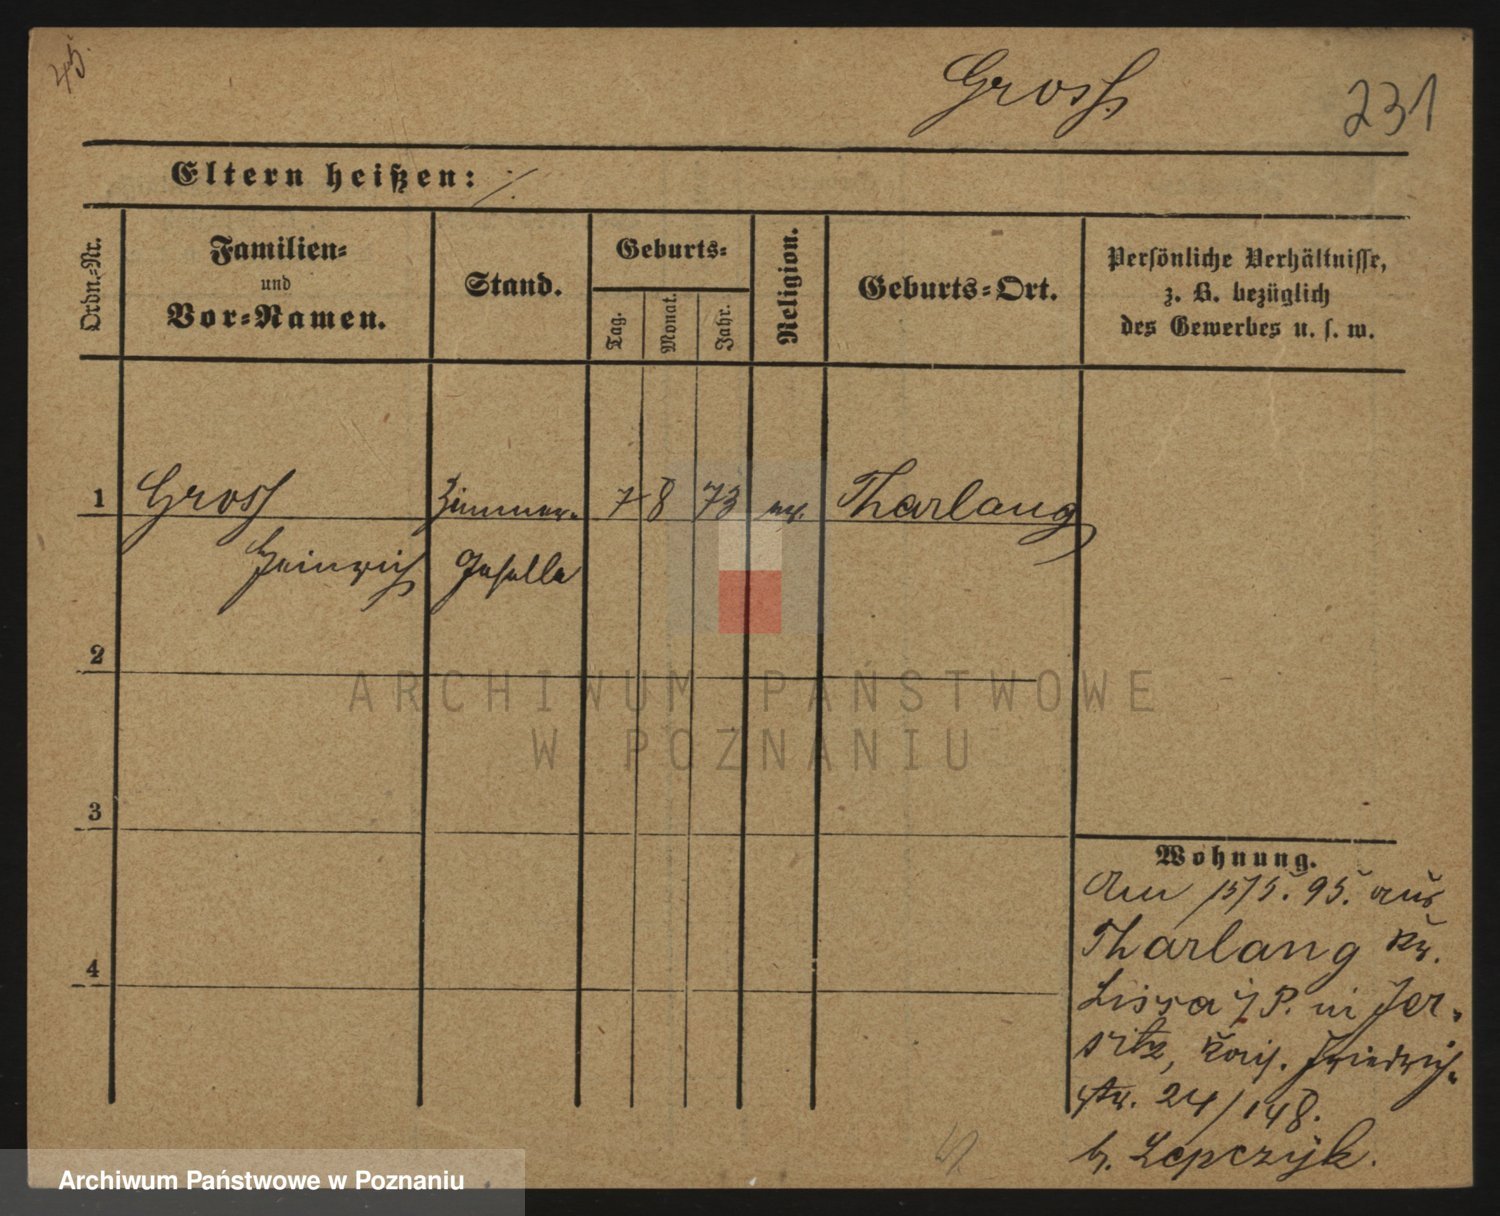 45.
Gross.
231
Eltern heißen: ·/·
Ordn.-Nr.
Familien-
und
Vor-Namen.
Stand.
Geburts-
Tag.
Monat.
Jahr.
Religion.
Geburts-Ort.
Persönliche Verhältnisse,
z. B. bezüglich
des Gewerbes u. s. w.
1 Gross Zimmer- 7 8 73 ev. Tharlang
Heinrich Geselle
2
3
4
Wohnung.
Am 15/5. 95. aus
Tharlang Kr.
Lissa i/P. in Jer-
sitz, Kais. Friedrich-
str. 24/148.
b. Lepczyk.
ARCHIWUM PAŃSTWOWE
W POZNANIU
Archiwum Państwowe w Poznaniu